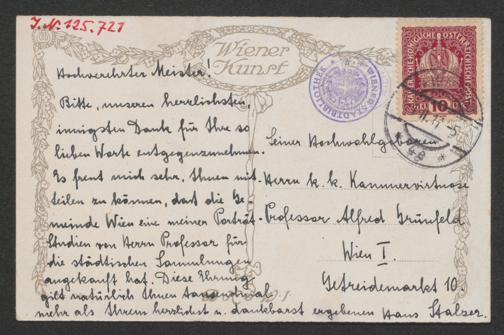 J. N. 125.721
Wiener
Kunst
WIENER STADTBIBLIOTHEK
KAISERLICHE KÖNIGLICHE ÖSTERREICHISCHE POST
10
Hochverehrter Meister!
Bitte, unseren herrlichsten,
innigsten Dank für Ihre so
lieben Worte entgegenzunehmen.
Es freut mich sehr, Ihnen mit-
teilen zu können, daß die Ge-
meinde Wien eine meiner Porträt-
Studien von Herrn Professor für
die städtischen Sammlungen
angekauft hat. Diese Ehrung
gilt natürlich Ihnen tausendmal
mehr als Ihrem herzlichst u. dankbarst ergebenen Hans Stalzer.
Seiner Hochwohlgeboren
Herrn k. k. Kammervirtuose
Professor Alfred Grünfeld
Wien I.
Getreidemarkt 10.